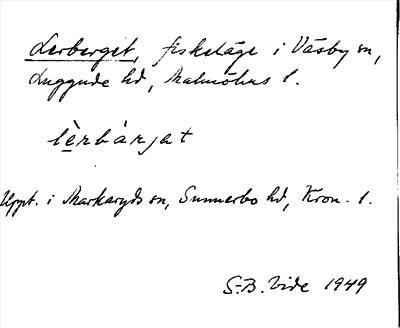 Lerberget, fiskeläge i Väsby sn,
Luggude hd, Malmöhus l.
lèrbàrjat
Uppt. i Markaryds sn, Sunnerbo hd, Kron. l.
S-B. Vide 1949